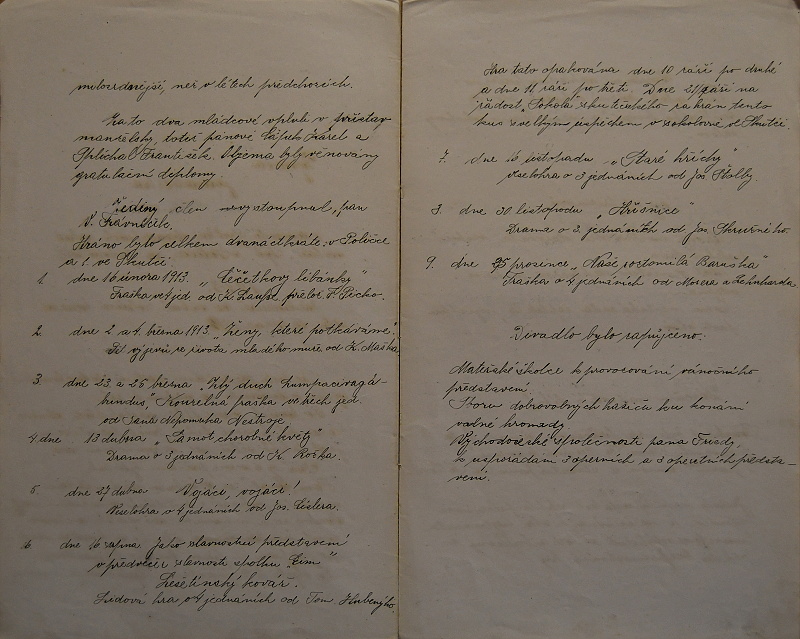 milosrdnější, než v létech předchozích.
Za to dva mládcové vpluli v přístav
manželský, totéž pánové Čápek Karel a
Šplíchal František. Oběma byly věnovány
gratulační diplomy.
Jediný člen nevystoupnul, pan
V. Trávníček.
Hráno bylo celkem dvanáctkráte, v Poličce
a 1. ve Skutči
1. dne 16 února 1913. „Čečetkovy líbánky"
Fraška ve 4 jed. od K. Laufse. přelož. F. Picho.
2. dne 2 a 4. března 1913 „Ženy, které potkáváme".
Pět výjevů ze života mladého muže od K. Maška
3. dne 23 a 25 března „Zlý duch Lumpacivagá-
bundus", Kouzelná fraška ve třech jed.
od Jana Nepomuka Nestroje
4. dne 13 dubna „Samot chorobné květy"
Drama o 3 jednáních od K. Rožka.
5. dne 27 dubna Vojáci, vojáci!
Veselohra o 4 jednáních od Jos. Štolera.
6. dne 16 srpna Jako slavnostní představení
v předvečer slavnosti spolku „Tim"
Lešetínský kovář.
Lidová hra o 4 jednáních od Tom. Hubeného
Hra tato opakována dne 10 září po druhé
a dne 11 září po třetí. Dne 21 září na
žádost „Sokola" skutečského zahrán tento
kus s velkým úspěchem v sokolovně ve Skutči.
7. dne 15 listopadu „Staré hříchy"
Veselohra o 3 jednáních od Jos. Štolby.
8. dne 30 listopadu „Hříšnice"
Drama o 3. jednáních od Jos. Skružného.
9. dne 25 prosince „Naše roztomilá Baruška"
Fraška o 4 jednáních od Mosera a Lehnharda.
Divadlo bylo zapůjčeno.
Mateřské školce k provozování vánočního
představení
Sboru dobrovolných hasičů ku konání
valné hromady
Východočeské společnosti pana Fuedy,
k uspořádání 3 operních a 3 operetních předsta-
vení.